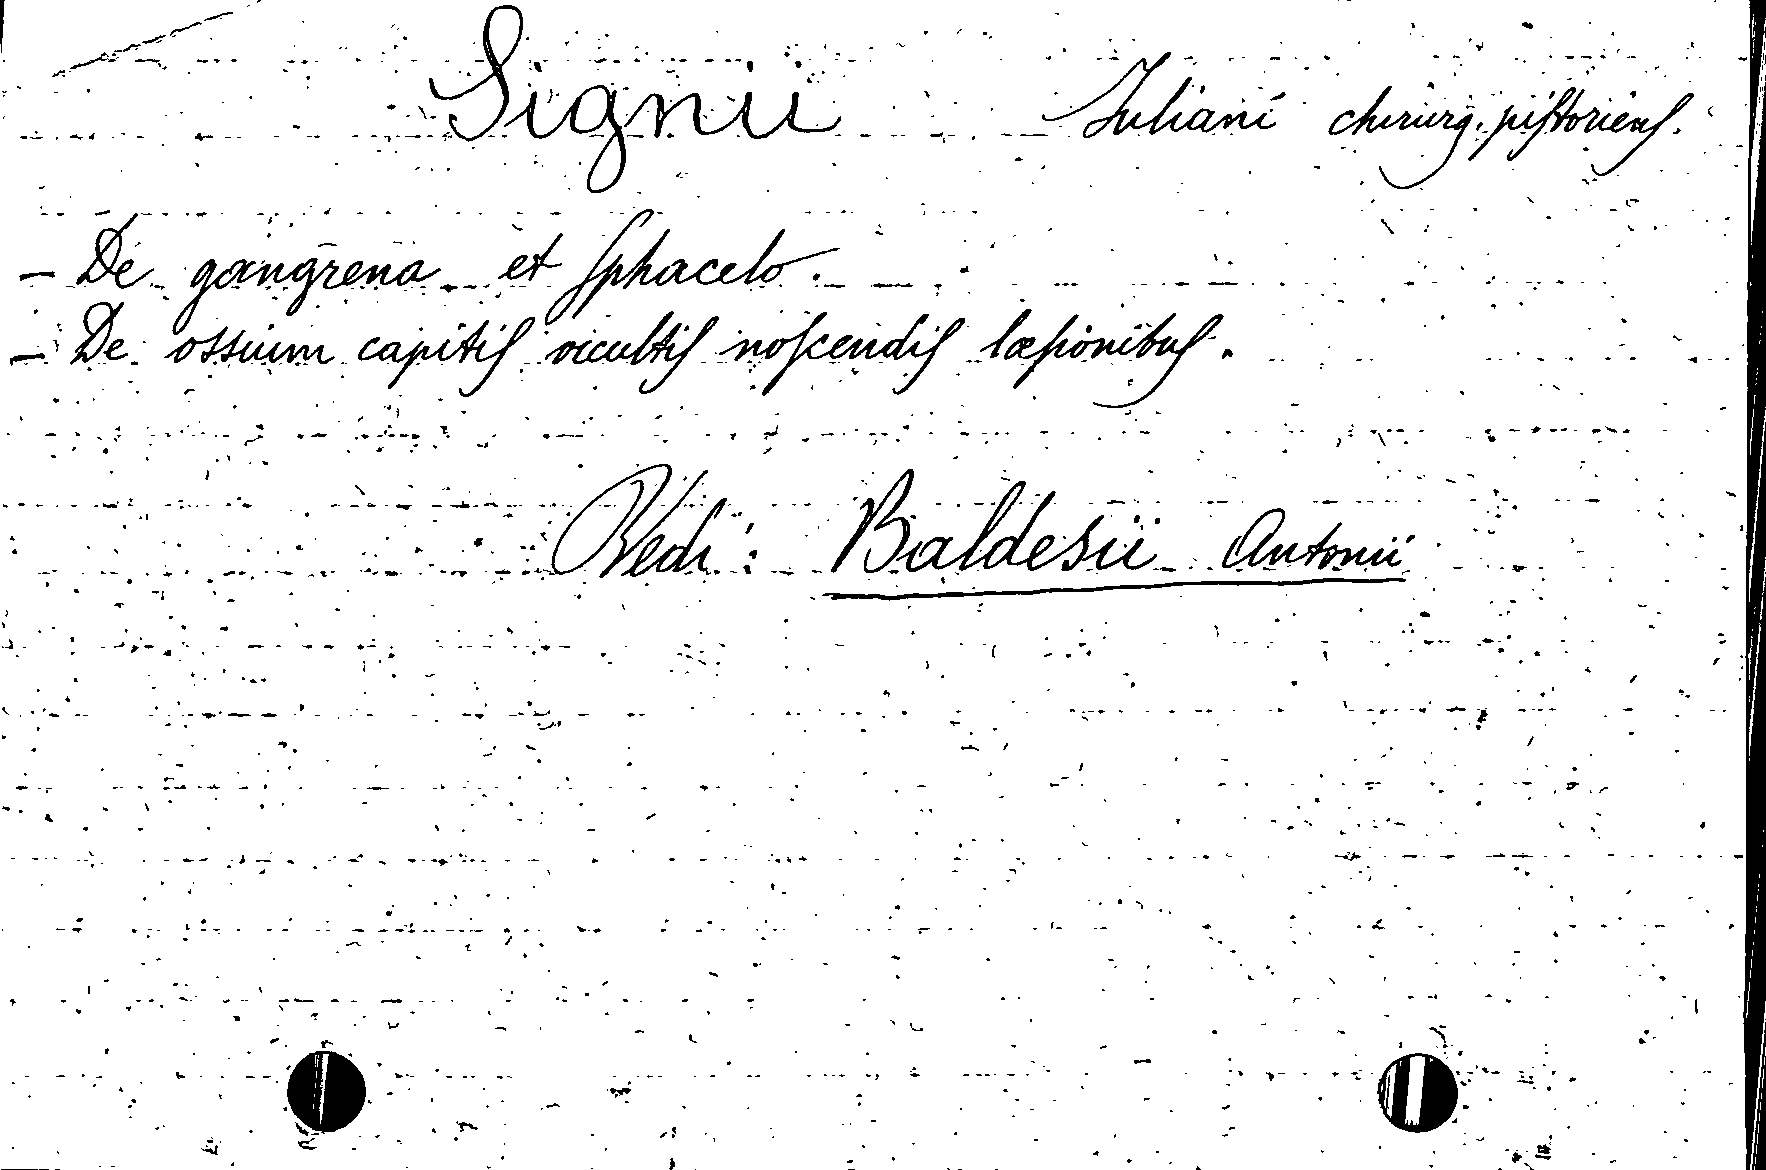 Signii Iuliani chirurg. piſtorienſ.
- De gangrena et ſphacelo.
- De ossium capitiſ occultiſ noſcendiſ læſionibuſ.
Vedi: Baldesii Antonii